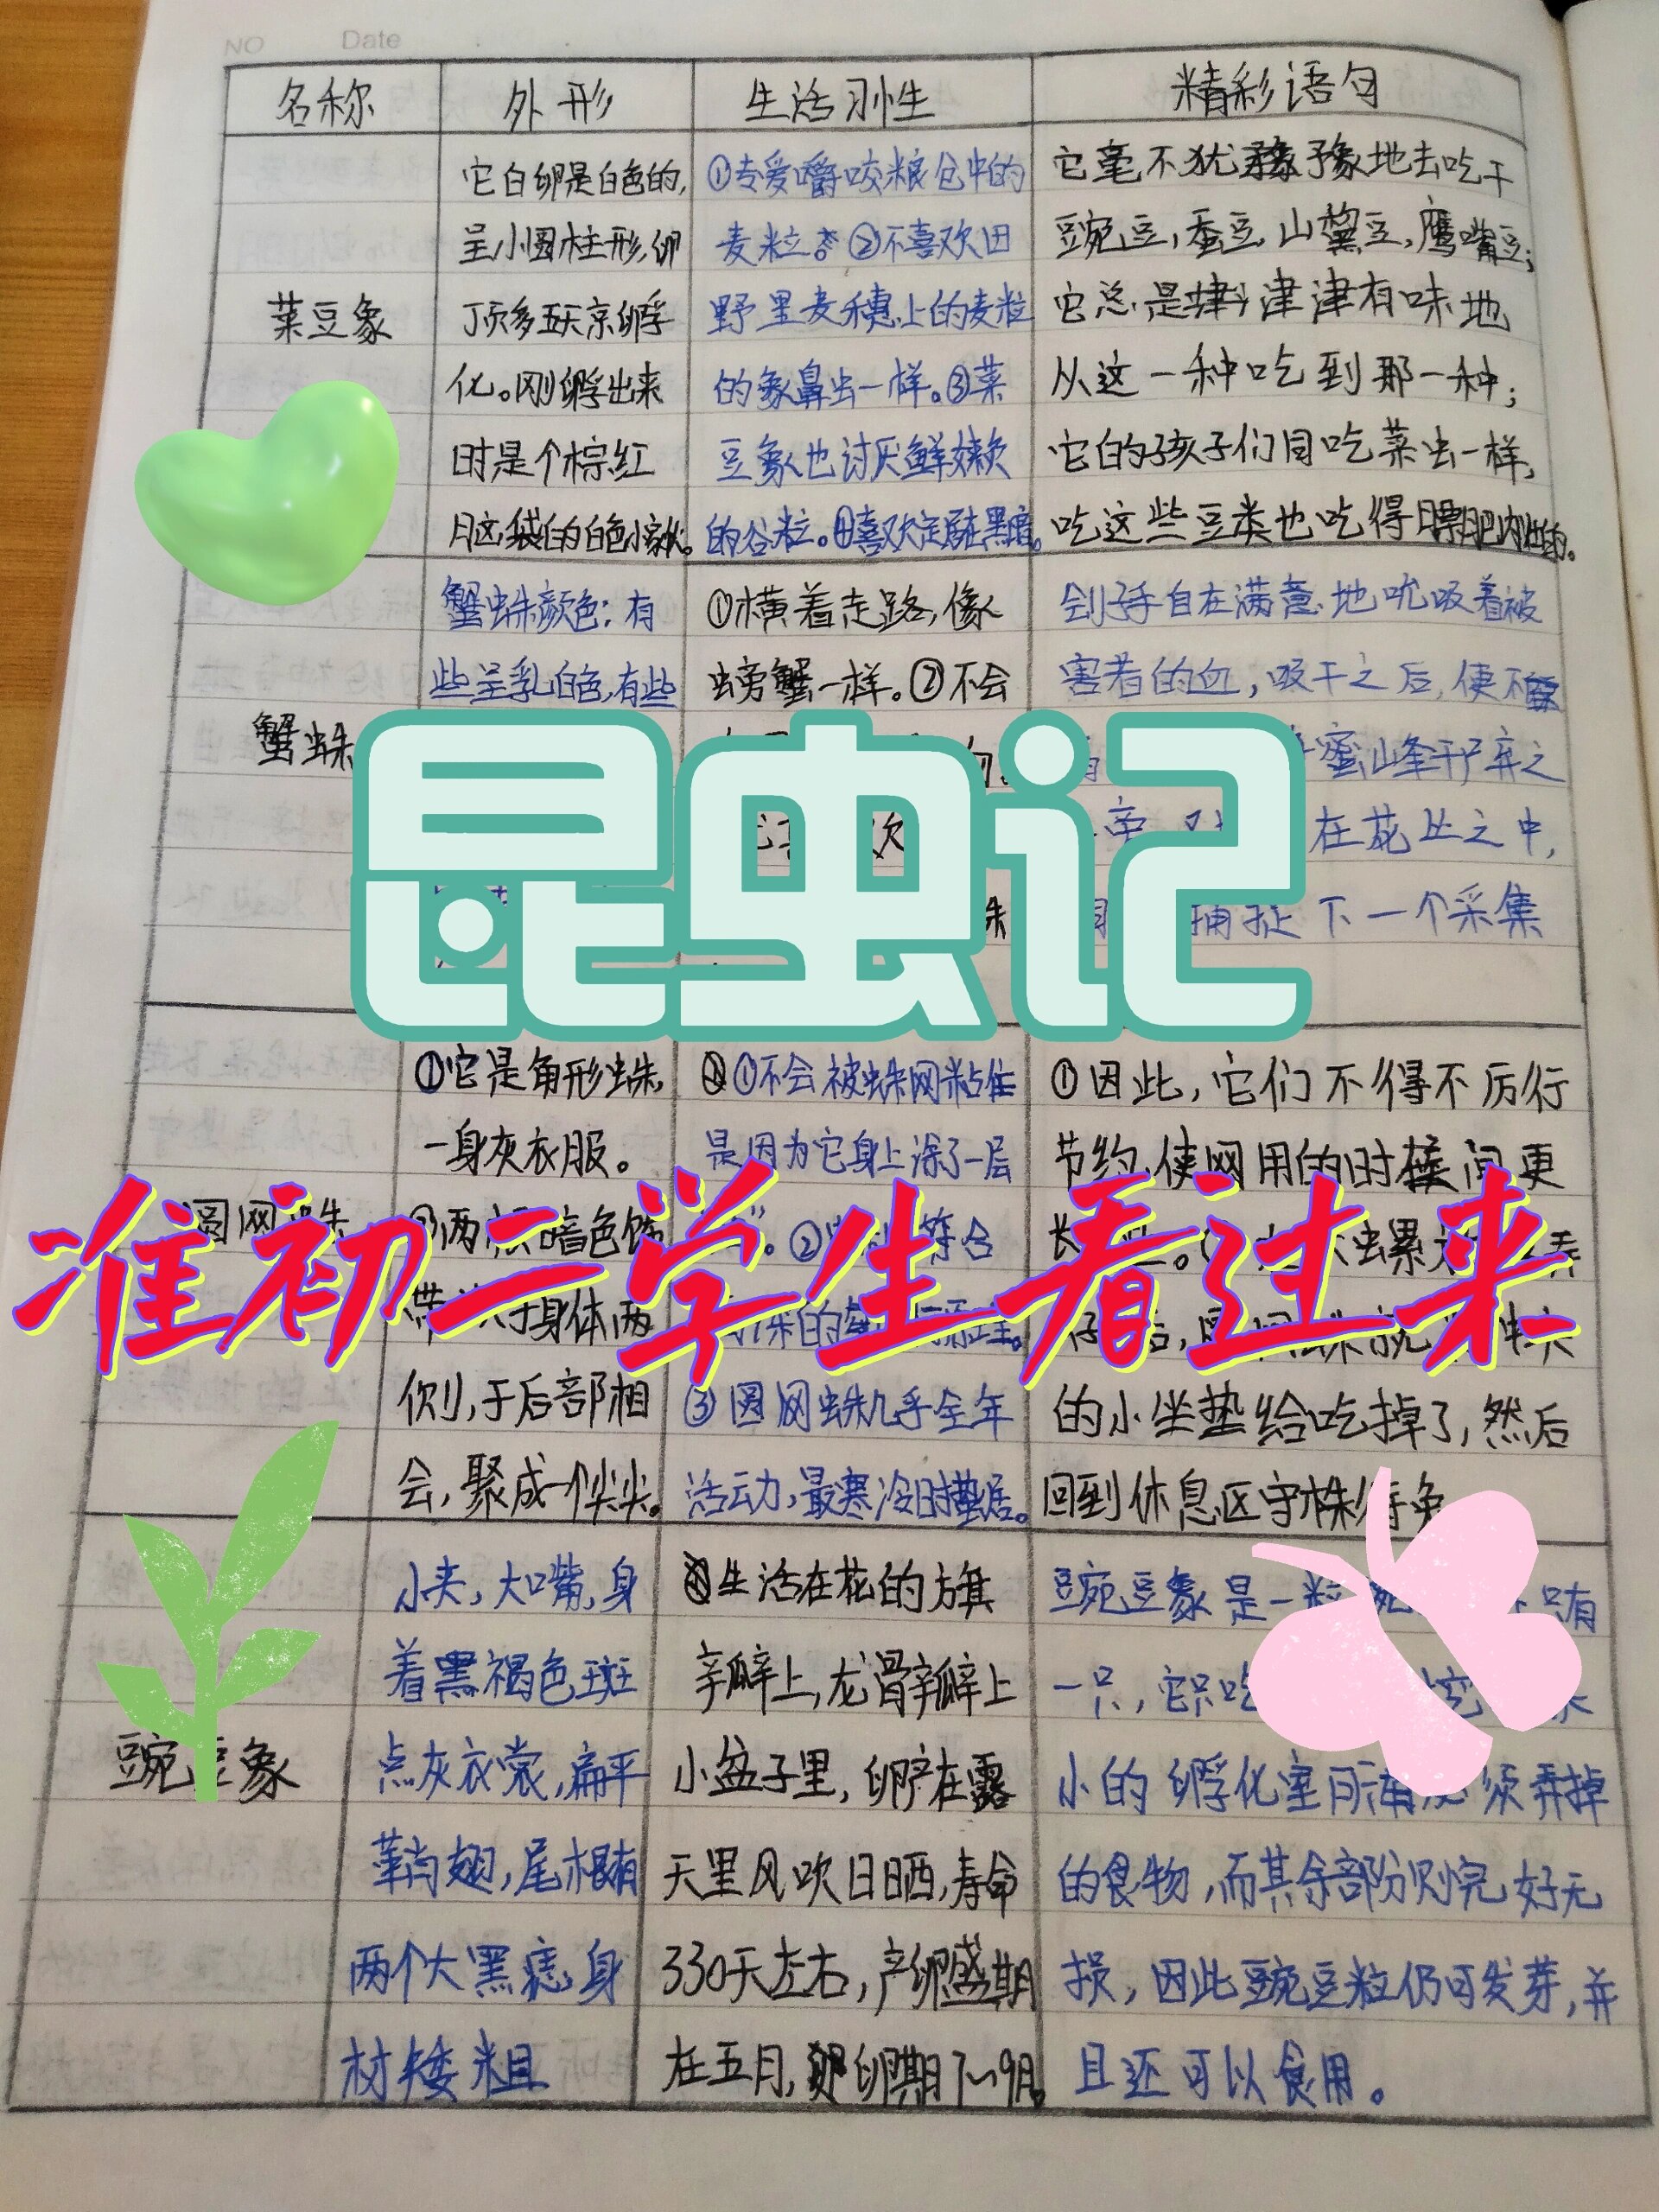 NO Date
名称 外形 生活习性 精彩语句
菜豆象
它白卵是白色的,
呈小圆柱形,卵
顶多五天亲孵
化。刚孵出来
时是个棕红
脑袋的白色小家伙。
①专爱嚼咬粮仓中的
麦粒。②不喜欢田
野里麦穗上的麦粒
的象鼻虫一样。③菜
豆象也讨厌鲜嫩
的谷粒。④喜欢定居在黑暗。
它毫不犹豫地去吃干
豌豆,蚕豆,山黧豆,鹰嘴豆;
它总是津津有味地
从这一种吃到那一种;
它的孩子们同吃菜虫一样,
吃这些豆类也吃得膘肥肉壮的。
蟹蛛
蟹蛛颜色:有
些呈乳白色,有些
①横着走路,像
螃蟹一样。②不会
刽子手自在满意地吮吸着被
害者的血,吸干之后,便不
蜜蜂干尸弃之
在花丛之中,
捕捉下一个采集
昆虫记
圆网蛛
①它是角形蛛,
一身灰衣服。
②两 暗色饰
带 于身体两
侧,于后部相
会,聚成一个尖尖。
①不会被蛛网粘住
是因为它身上涂了一层
②
符合
③圆网蛛几乎全年
活动,最寒冷时蛰居。
①因此,它们不得不厉行
节约,使网用的时间更
的小坐垫给吃掉了,然后
回到休息区守株待兔
准初二学生看过来
豌豆象
小夹,大嘴,身
着黑褐色斑
点灰衣裳,扁平
鞘翅,尾根有
两个大黑痣,身
材矮粗
生活在花的旗
瓣上,龙骨瓣上
小盆子里,卵产在露
天里风吹日晒,寿命
330天左右,产卵盛期
在五月,卵期7~9月。
豌豆象是一粒 只有
一只,它只吃
小的孵化室所 须弄掉
的食物,而其余部分则完好无
损,因此豌豆粒仍可发芽,并
且还可以食用。